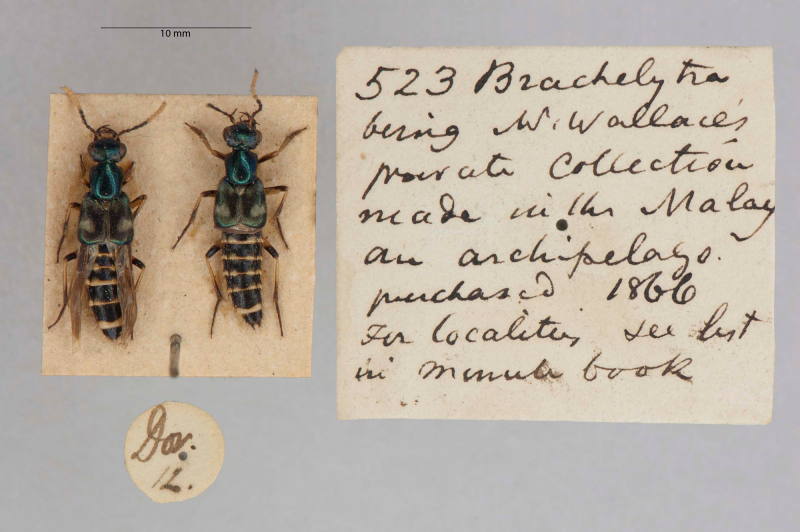 10 mm
523 Brachelytra
being Mr. Wallace's
private Collection
made in the Malay
an archipelago.
purchased 1866
For localities see list
in minute book
Dor.
12.